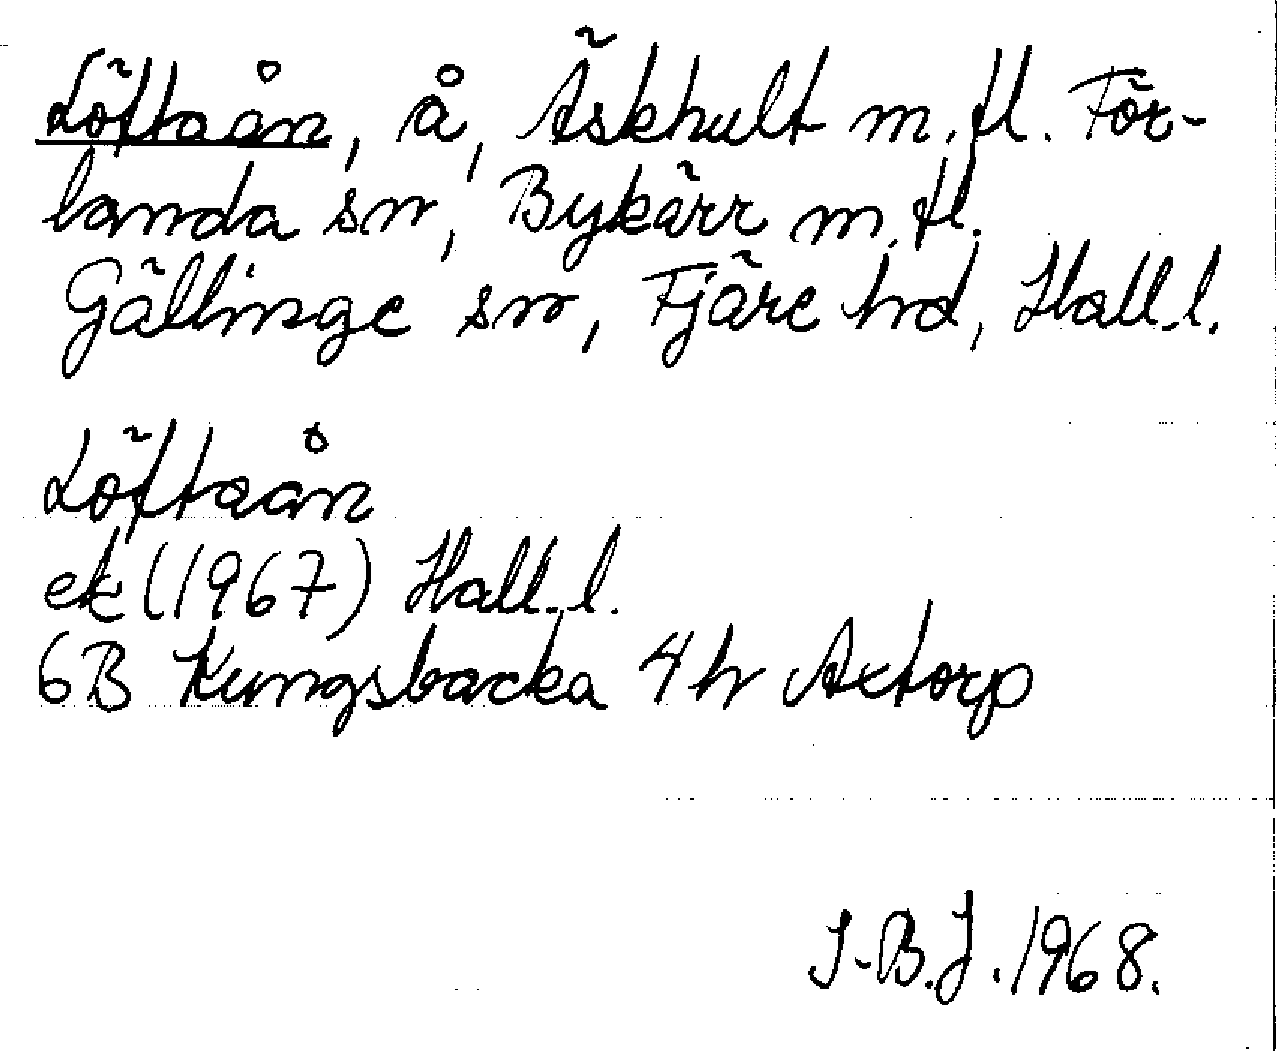 Löftaån, å, Äskhult m.fl. För-
landa sn, Bykärr m.fl.
Gällinge sn, Fjäre hd, Hall.l.
Löftaån
ek (1967) Hall.l.
6B Kungsbacka 4h Axtorp
I-B.J. 1968.